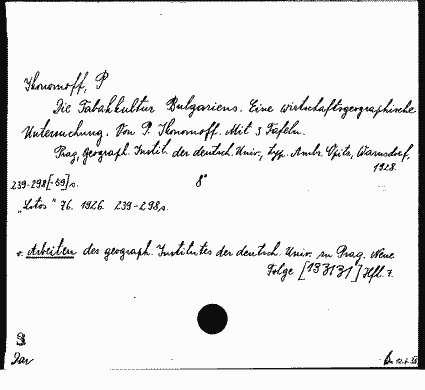 Ikonomoff, P
Die Tabakkultur Bulgariens. Eine wirtschaftsgeographische
Untersuchung. Von P. Ikonomoff. Mit 3 Tafeln.
Prag, Geograph. Instit. der deutsch. Univ., typ. Ambr. Opitz, Warnsdorf,
1928.
239-298[-59]s. 8°
„Lotos" 76. 1926. 239-298s.
v. Arbeiten des geograph. Institutes der deutsch. Univ. in Prag. Neue
Folge [133131] Hft. 7.